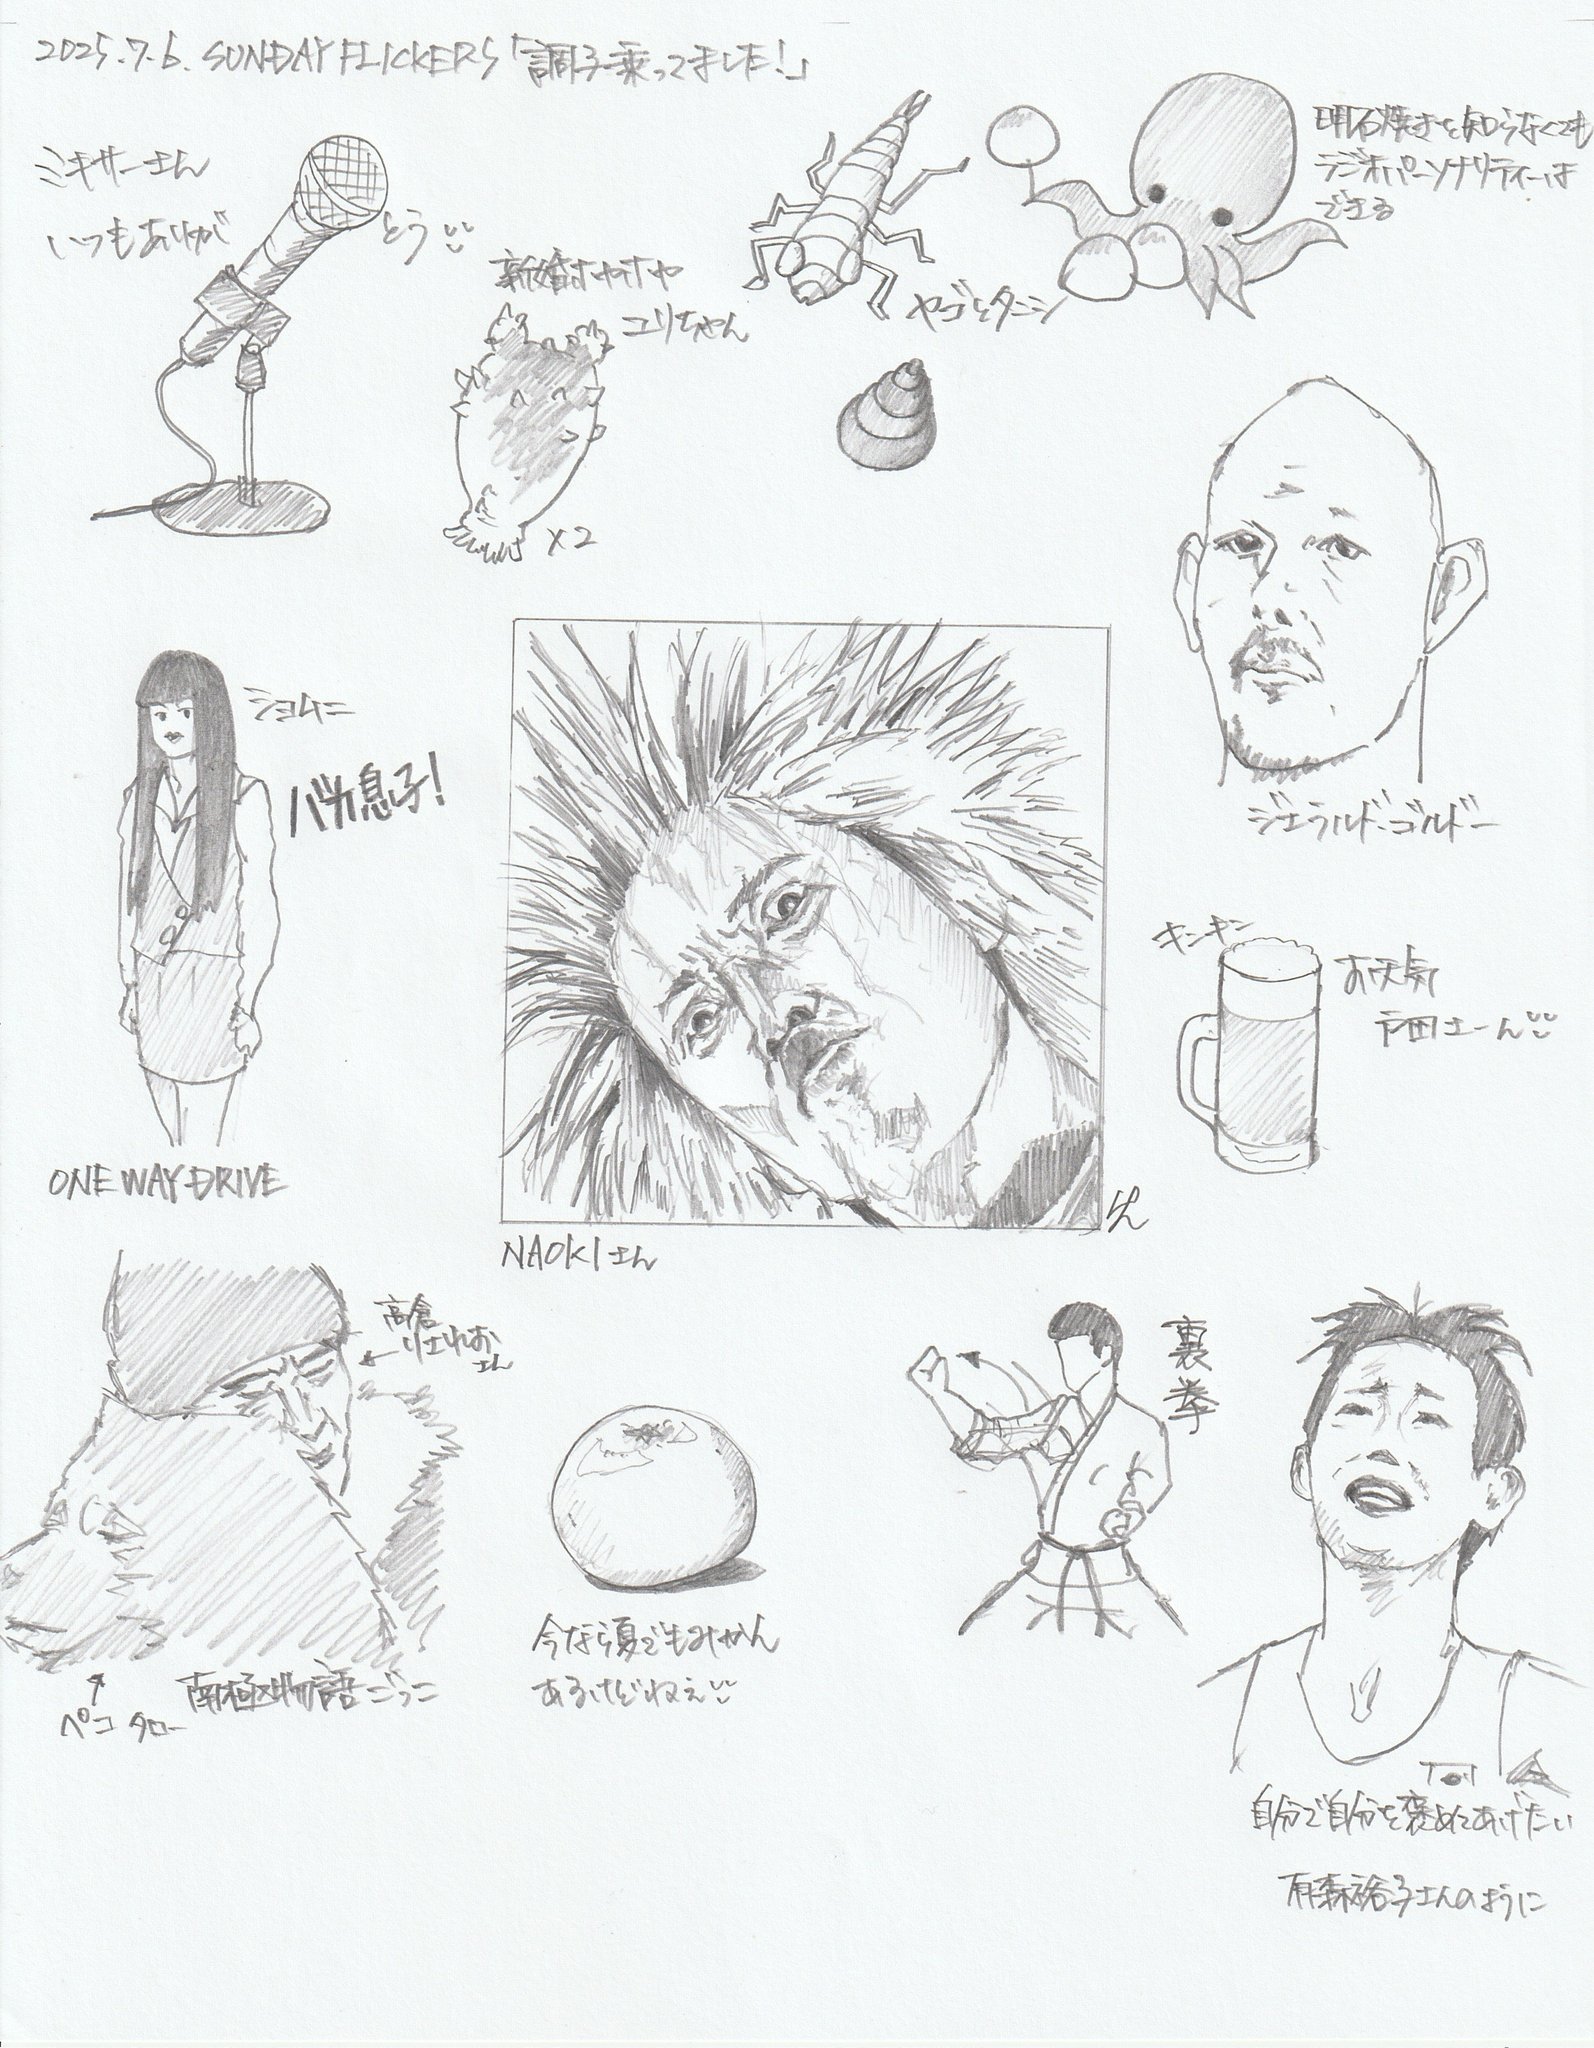 2025.7.6. SUNDAY FLICKERS「調子乗ってました!」
ミキサーさん
いつもありが
とう
新婚ホヤホヤ
ユリちゃん
×2
ヤゴとタニシ
明石焼きを知らなくても
ラジオパーソナリティーは
できる
ジェラルド・ゴルドー
ショムニ
バカ息子!
ONE WAY DRIVE
NAOKIさん
けん
キンキン
お天気
戸田さーん
高倉
りされお
さん
ペコタロー
南極物語ごっこ
今なら夏でもみかん
あるけどねぇ
裏拳
自分で自分を褒めてあげたい
有森裕子さんのように